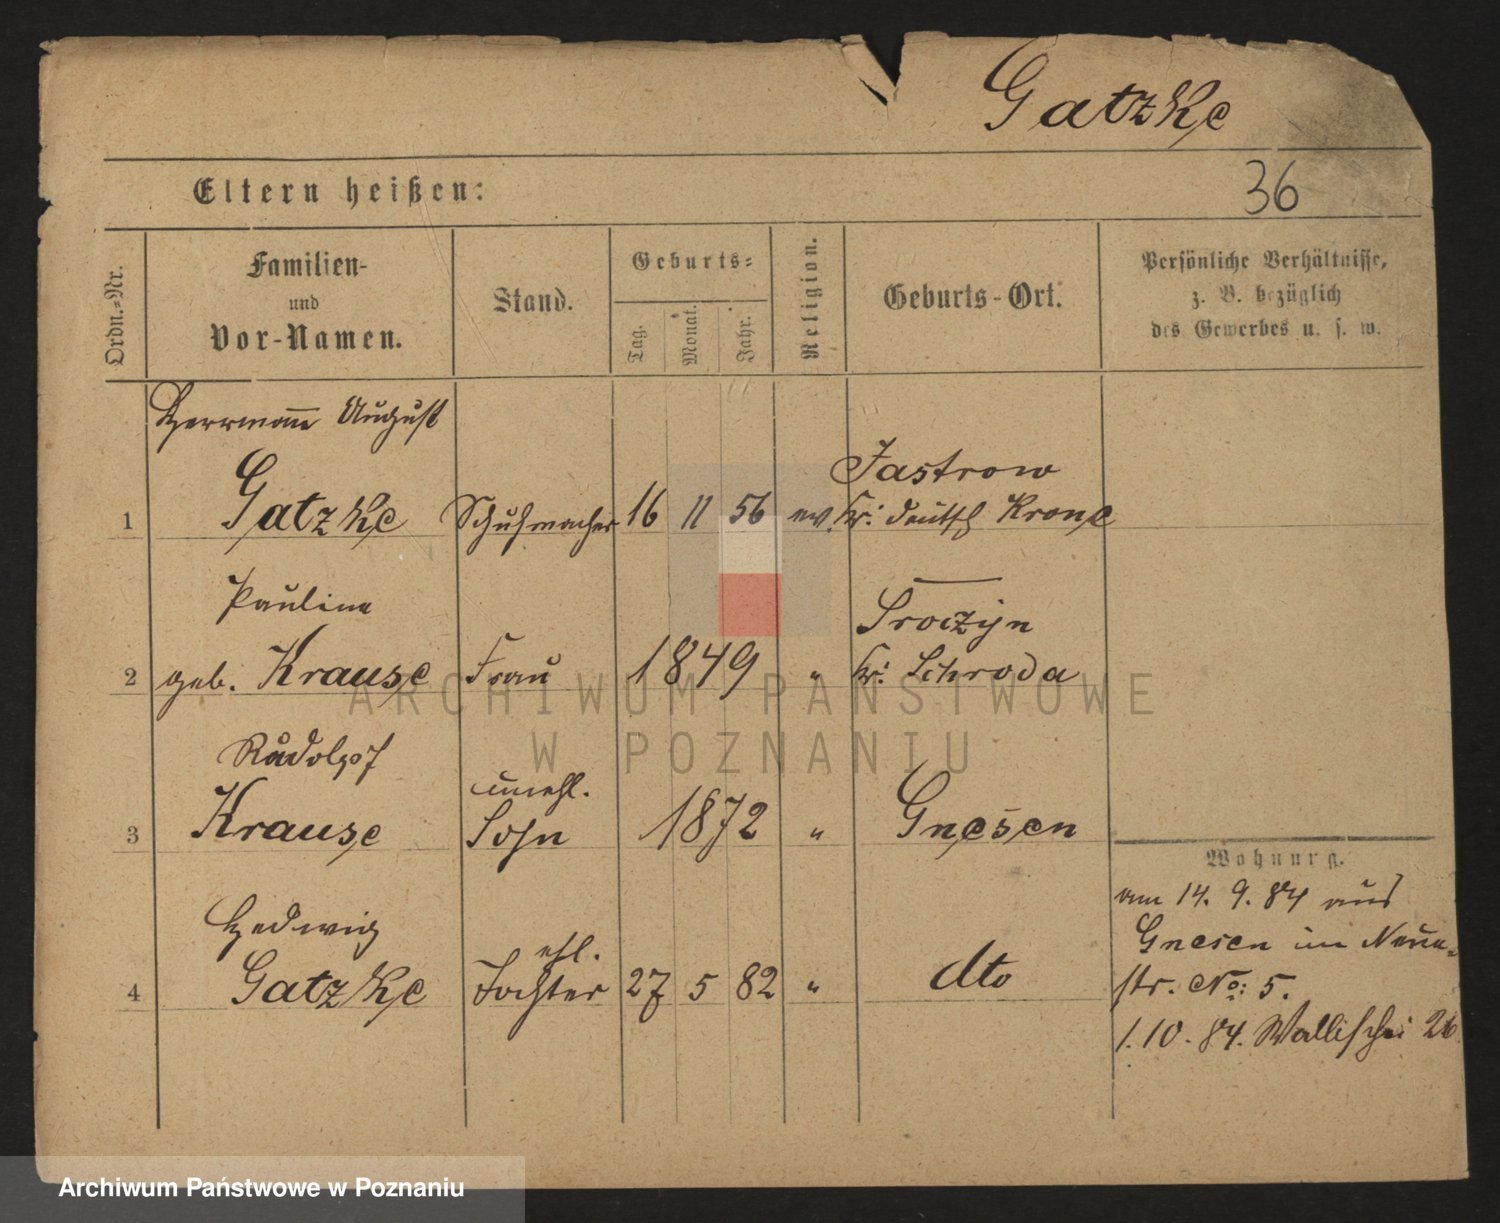 Gatzke
Eltern heißen:
36
Ordn.=Nr.
Familien-
und
Vor-Namen.
Stand.
Geburts=
Tag.
Monat.
Jahr.
Religion.
Geburts-Ort.
Persönliche Verhältnisse,
z. B. bezüglich
des Gewerbes u. s. w.
Herrmann August
1 Gatzke Schuhmacher 16 11 56 ev.
Jastrow
Kr. deutsch Krone
Pauline
2 geb. Krause Frau 1849 "
Sroczyn
Kr. Schroda
Rudolph
3 Krause
unehl.
Sohn 1872 " Gnesen
Hedwig
4 Gatzke
ehl.
Tochter 27 5 82 " dto
Wohnung.
am 14. 9. 84 aus
Gnesen im Neue-
str. No: 5.
1. 10. 84. Wallischei 26
ARCHIWUM PAŃSTWOWE
W POZNANIU
Archiwum Państwowe w Poznaniu